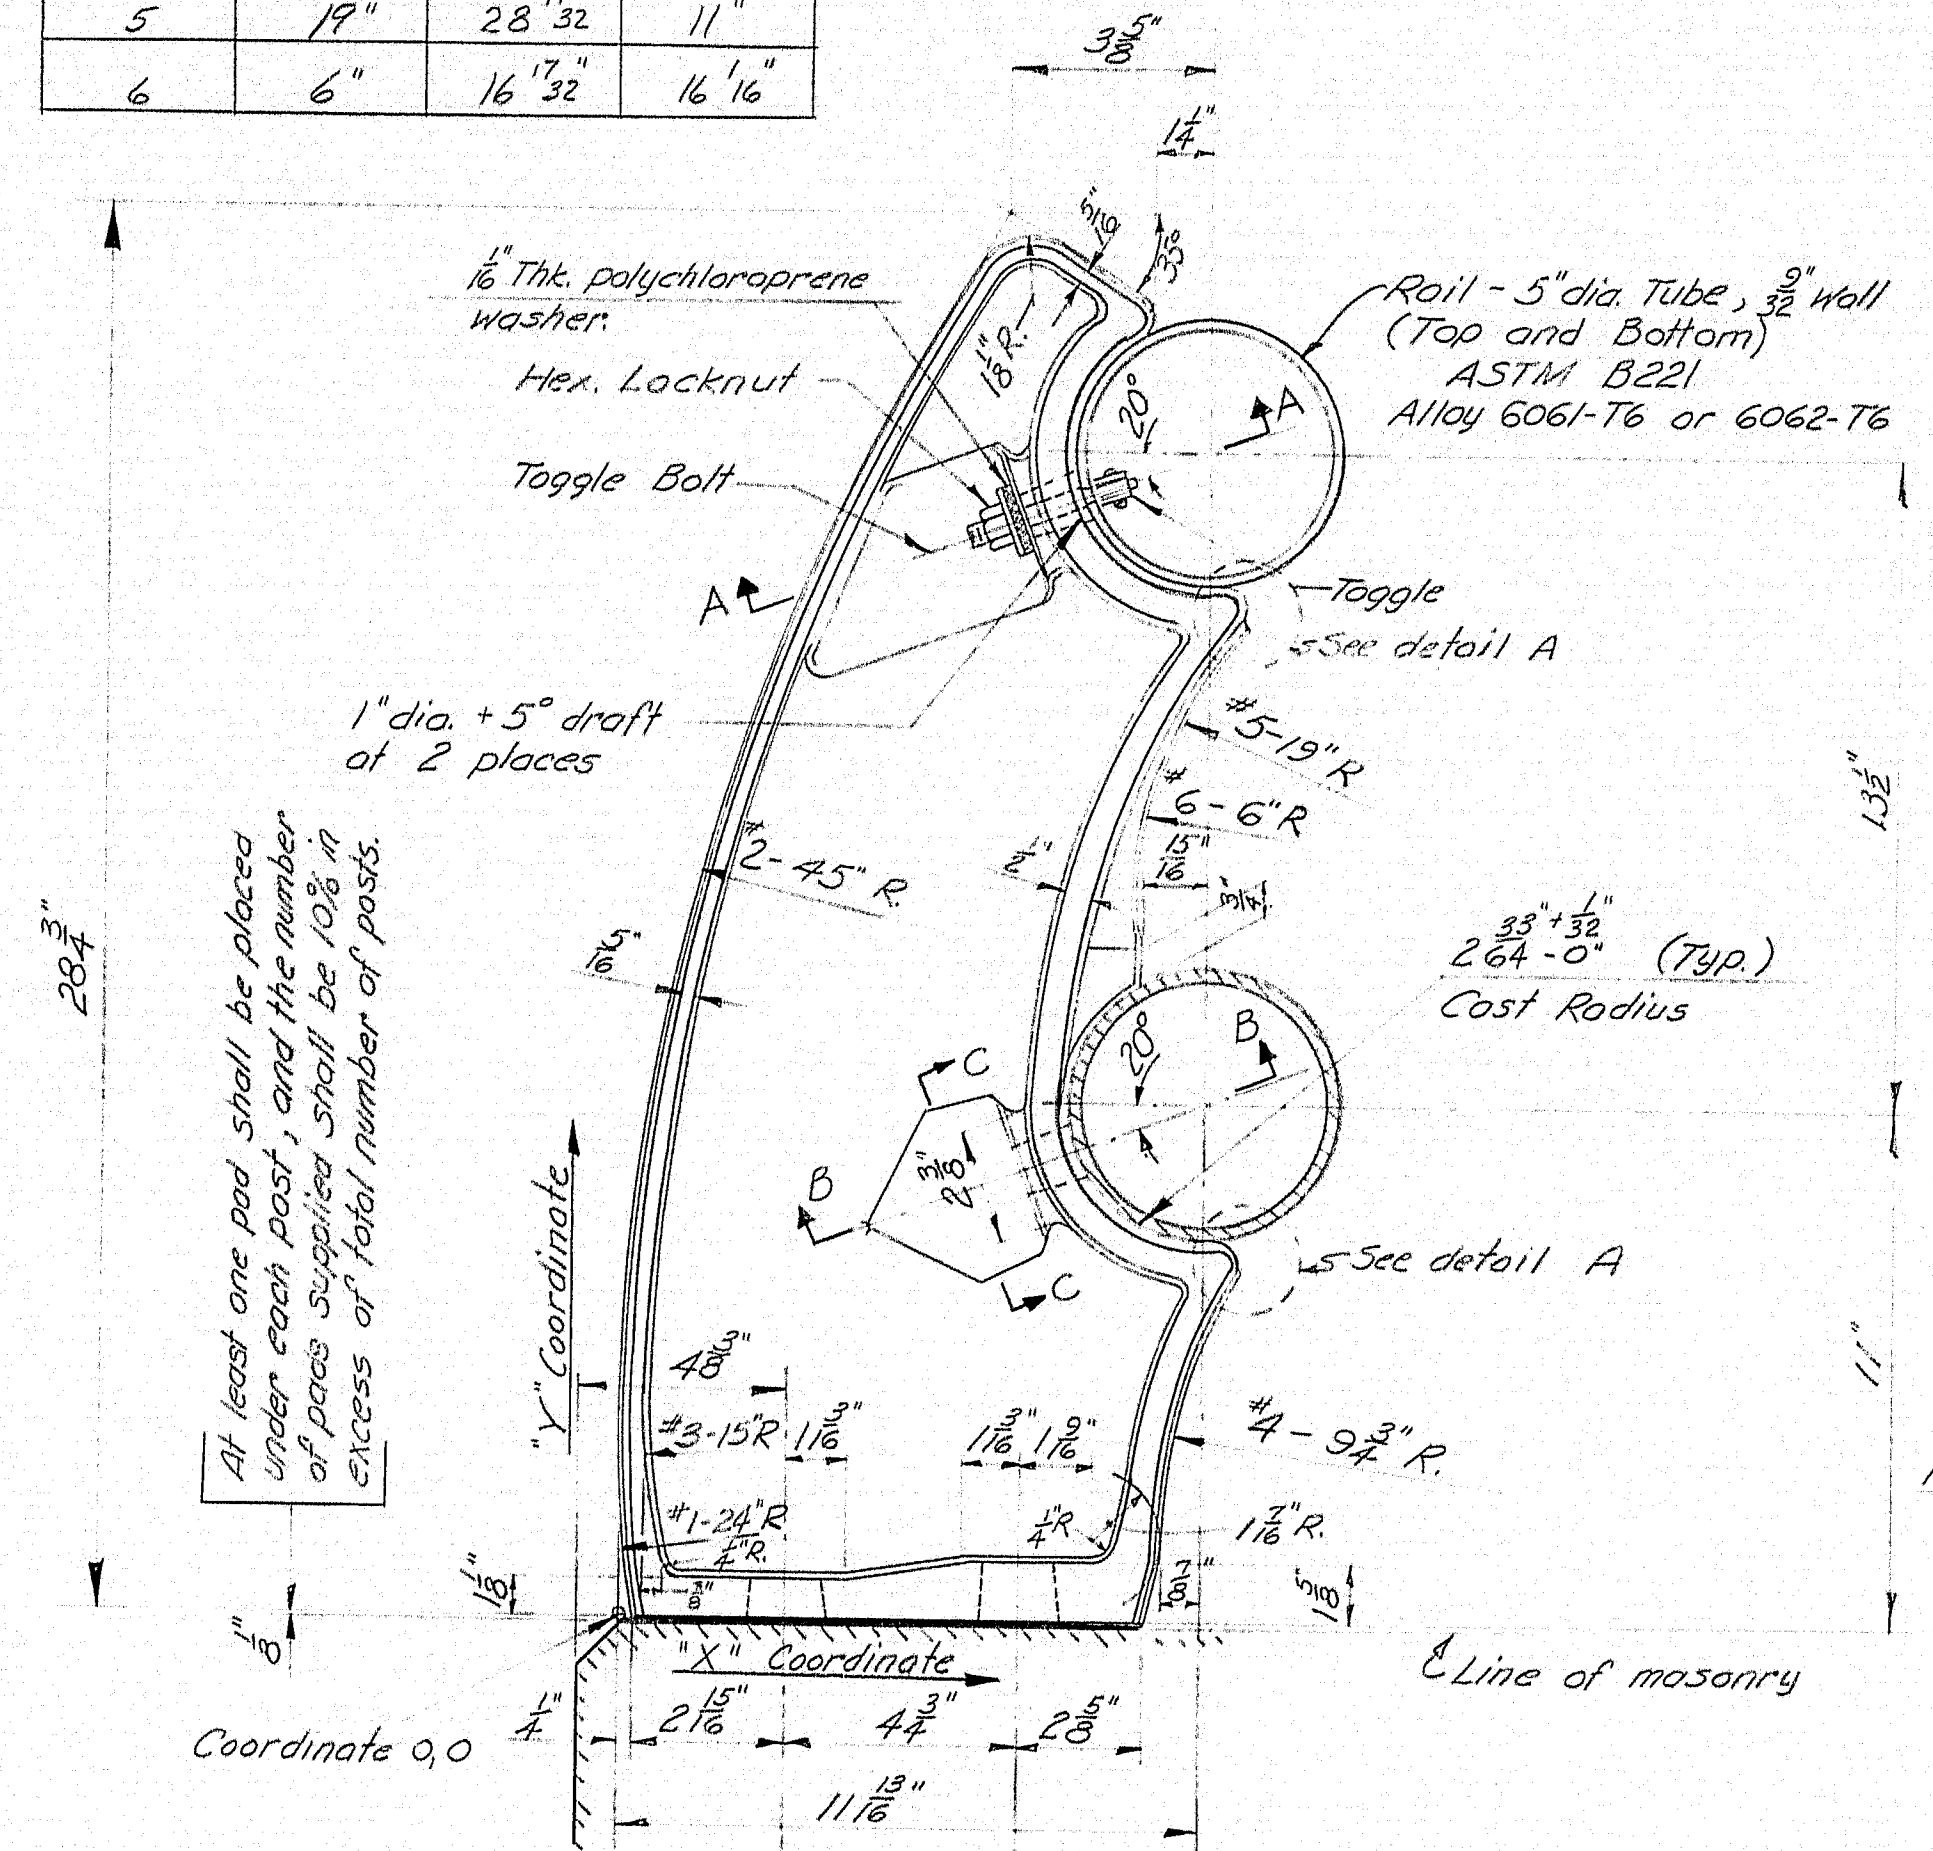 5 19" 28 /32 11"
6 6" 16 17/32" 16 1/16"
3 5/8"
1 1/4"
5/16"
35°
1/16" Thk. polychloroprene
washer.
Hex. Locknut
Toggle Bolt
1 1/8" R.
20°
A
Rail - 5" dia. Tube, 9/32" Wall
(Top and Bottom)
ASTM B221
Alloy 6061-T6 or 6062-T6
A
Toggle
See detail A
1" dia. + 5° draft
at 2 places
#5-19" R
#6-6" R
15/16"
3/4"
#2-45" R.
1/2"
13 1/2"
5/16"
28 3/4"
At least one pad shall be placed
under each post, and the number
of pads supplied shall be 10% in
excess of total number of posts.
2 33/64" + 1/32" - 0" (Typ.)
Cast Radius
20°
B
C
2 3/8"
B
C
See detail A
"Y" Coordinate
4 3/8"
#3-15" R
1 3/16"
1 3/16"
1 9/16"
#4-9 3/4" R.
11"
#1-24" R
1/4" R.
1/4" R
1 7/16" R.
1 1/8"
7/8"
1 5/8"
1/8"
"X" Coordinate
℄ Line of masonry
Coordinate 0,0
1/4"
2 15/16"
4 3/4"
2 5/8"
11 13/16"